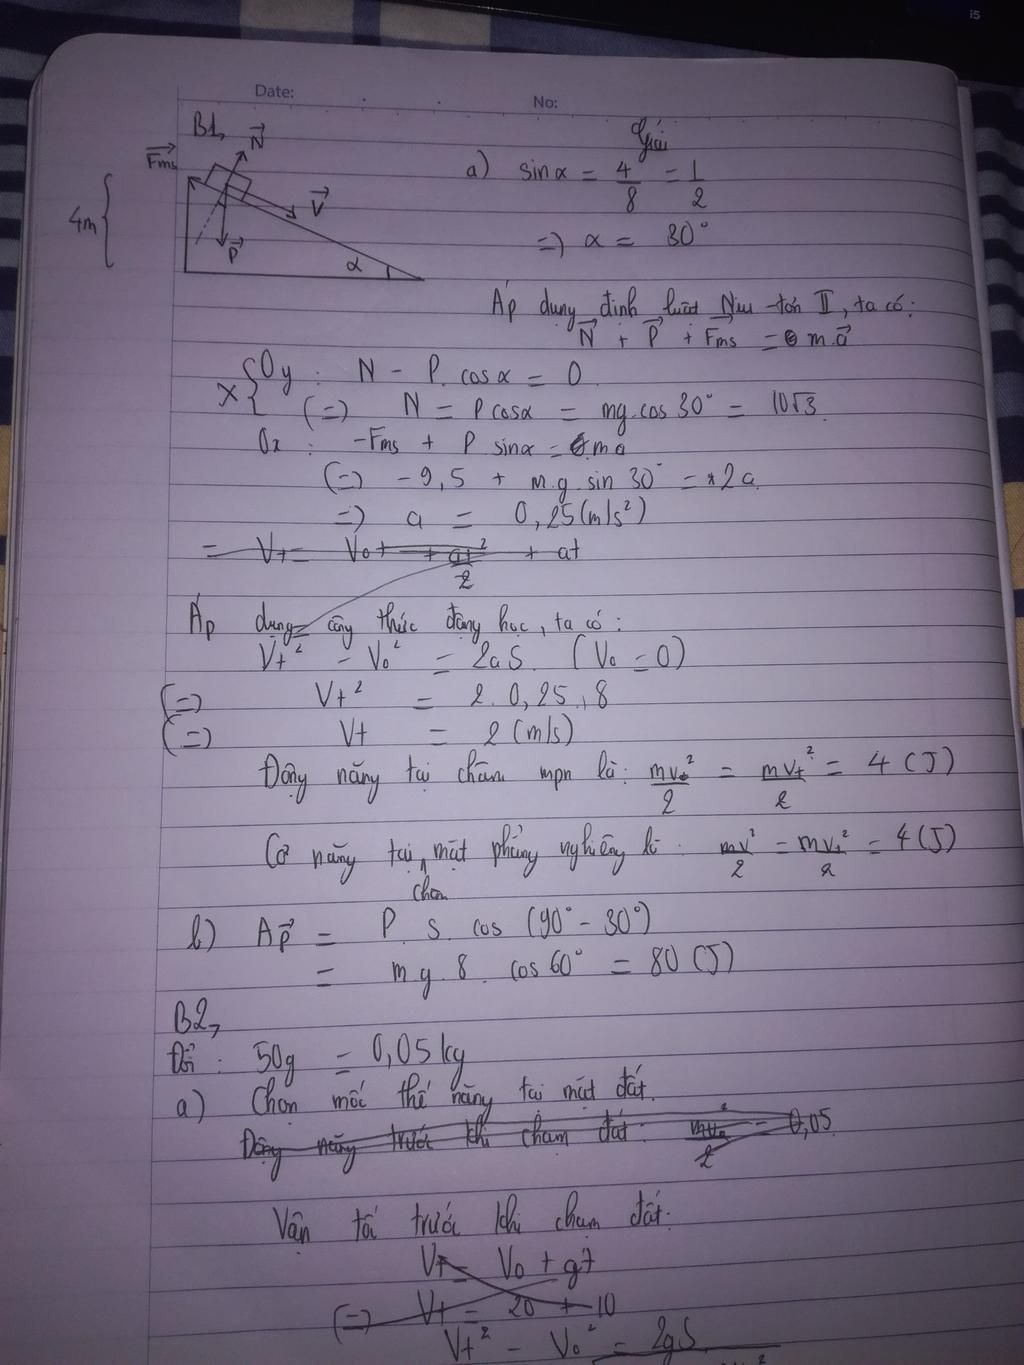 i5
Date:
No:
B1,
N
Fms
V
4m
P
α
Giải
a) sinα = 4/8 = 1/2
=> α = 30°
Áp dụng định luật Niu-tơn II, ta có:
N + P + Fms = m.a
x { Oy : N - P.cosα = 0
(=) N = Pcosα = mg.cos30° = 10√3
Ox : -Fms + P sinα = ma
(=) -9,5 + m.g.sin30° = 2a
=> a = 0,25(m/s²)
= Vt = Vo + at²/2 + at
Áp dụng công thức động học, ta có:
Vt² - Vo² = 2aS. (Vo = 0)
(=) Vt² = 2.0,25.8
(=) Vt = 2(m/s)
Động năng tại chân mpn là: mvt²/2 = 4(J)
Cơ năng tại chân mặt phẳng nghiêng là: mv²/2 = mvt²/2 = 4(J)
b) AP = P.S.cos(90° - 30°)
= mg.8.cos60° = 80(J)
B2,
Đổi: 50g = 0,05kg
a) Chọn mốc thế năng tại mặt đất.
Động năng trước khi chạm đất: = 0,05
Vận tốc trước khi chạm đất:
Vt = Vo + gt
(=) Vt = 20 + 10
Vt² - Vo² = 2gS